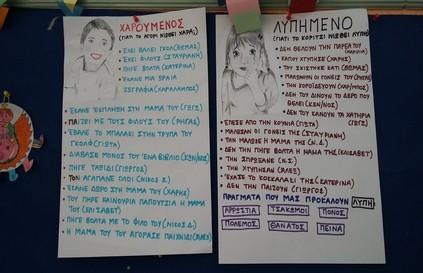 ΧΑΡΟΥΜΕΝΟΣ
(ΓΙΑΤΙ ΤΟ ΑΓΟΡΙ ΝΙΩΘΕΙ ΧΑΡΑ;)
• ΕΧΕΙ ΒΑΛΕΙ ΓΚΟΛ (ΘΕΜΑΣ)
• ΕΧΕΙ ΦΙΛΟΥΣ (ΣΤΑΥΡΙΑΝΗ)
• ΠΗΓΕ ΒΟΛΤΑ (ΚΑΤΕΡΙΝΑ)
• ΕΚΑΝΕ ΜΙΑ ΩΡΑΙΑ
ΖΩΓΡΑΦΙΑ (ΧΑΡΑΛΑΜΠΟΣ)
• ΕΚΑΝΕ ΕΚΠΛΗΞΗ ΣΤΗ ΜΑΜΑ ΤΟΥ
• ΠΑΙΖΕΙ ΜΕ ΤΟΥΣ ΦΙΛΟΥΣ ΤΟΥ (ΡΗΓΑΣ)
• ΕΒΑΛΕ ΤΟ ΜΠΑΛΑΚΙ ΣΤΗΝ ΤΡΥΠΑ ΤΟΥ
ΓΚΟΛΦ (ΓΙΩΤΑ)
• ΔΙΑΒΑΣΕ ΜΟΝΟΣ ΤΟΥ ΈΝΑ ΒΙΒΛΙΟ (ΚΩΝ/ΝΟΣ)
• ΠΗΓΕ ΤΑΞΙΔΙ (ΓΙΩΡΓΟΣ)
• ΤΟΝ ΑΓΑΠΑΝΕ ΟΛΟΙ (ΝΙΚΟΣ Σ.)
• ΕΚΑΝΕ ΔΩΡΟ ΣΤΗ ΜΑΜΑ ΤΟΥ (ΧΑΡΗΣ)
• ΤΟΥ ΠΗΡΕ ΚΑΙΝΟΥΡΙΑ ΠΑΠΟΥΤΣΙΑ Η ΜΑΜΑ
ΤΟΥ (ΕΛΙΣΑΒΕΤ)
• ΠΗΓΕ ΒΟΛΤΑ ΜΕ ΤΟ ΦΙΛΟ ΤΟΥ (ΝΙΚΟΣ Δ.)
• Η ΜΑΜΑ ΤΟΥ ΤΟΥ ΑΓΟΡΑΣΕ ΠΑΙΧΝΙΔΙ (ΑΛΕΞ)
ΛΥΠΗΜΕΝΟ
(ΓΙΑΤΙ ΤΟ ΚΟΡΙΤΣΙ ΝΙΩΘΕΙ ΛΥΠΗ;)
• ΔΕΝ ΘΕΛΟΥΝ ΤΗΝ ΠΑΡΕΑ ΤΟΥ
• ΚΑΠΟΥ ΧΤΥΠΗΣΕ (ΧΑΡΗΣ)
• ΤΟΥ ΣΚΙΣΤΗΚΕ ΚΑΤΙ (ΘΕΜΑΣ)
• ΜΑΛΩΝΟΥΝ ΟΙ ΓΟΝΕΙΣ ΤΟΥ (ΡΗΓΑΣ)
• ΤΟΝ ΚΟΡΟΪΔΕΥΟΥΝ (ΧΑΡ/ΜΠΟΣ)
• ΔΕΝ ΤΟΥ ΔΙΝΟΥΝ ΤΟ ΔΩΡΟ ΠΟΥ
ΘΕΛΕΙ (ΚΩΝ/ΝΟΣ)
• ΔΕΝ ΤΟΥ ΚΑΝΟΥΝ ΤΑ ΧΑΤΗΡΙΑ
• ΕΠΕΣΕ ΑΠΟ ΤΗΝ ΚΟΥΝΙΑ (ΓΙΩΤΑ)
• ΜΑΛΩΣΑΝ ΟΙ ΓΟΝΕΙΣ ΤΗΣ (ΣΤΑΥΡΙΑΝΗ)
• ΤΗΝ ΜΑΛΩΣΕ Η ΜΑΜΑ ΤΗΣ (Ν.Δ.)
• ΔΕΝ ΤΗΝ ΠΗΓΕ ΒΟΛΤΑ Η ΜΑΜΑ ΤΗΣ (ΕΛΙΣΑΒΕΤ)
• ΤΗΝ ΣΠΡΩΞΑΝΕ (Ν.Σ.)
• ΤΗΝ ΧΤΥΠΗΣΑΝ (ΑΛΕΞ)
• ΕΧΑΣΕ ΤΟ ΚΟΚΚΑΛΑΚΙ ΤΗΣ (ΚΑΤΕΡΙΝΑ)
• ΔΕΝ ΤΗΝ ΠΑΙΖΟΥΝ (ΓΙΩΡΓΟΣ)
ΠΡΑΓΜΑΤΑ ΠΟΥ ΜΑΣ ΠΡΟΚΑΛΟΥΝ ΛΥΠΗ
ΑΡΡΩΣΤΙΑ ΤΣΑΚΩΜΟΙ ΠΟΝΟΣ
ΠΟΛΕΜΟΣ ΘΑΝΑΤΟΣ ΠΕΙΝΑ